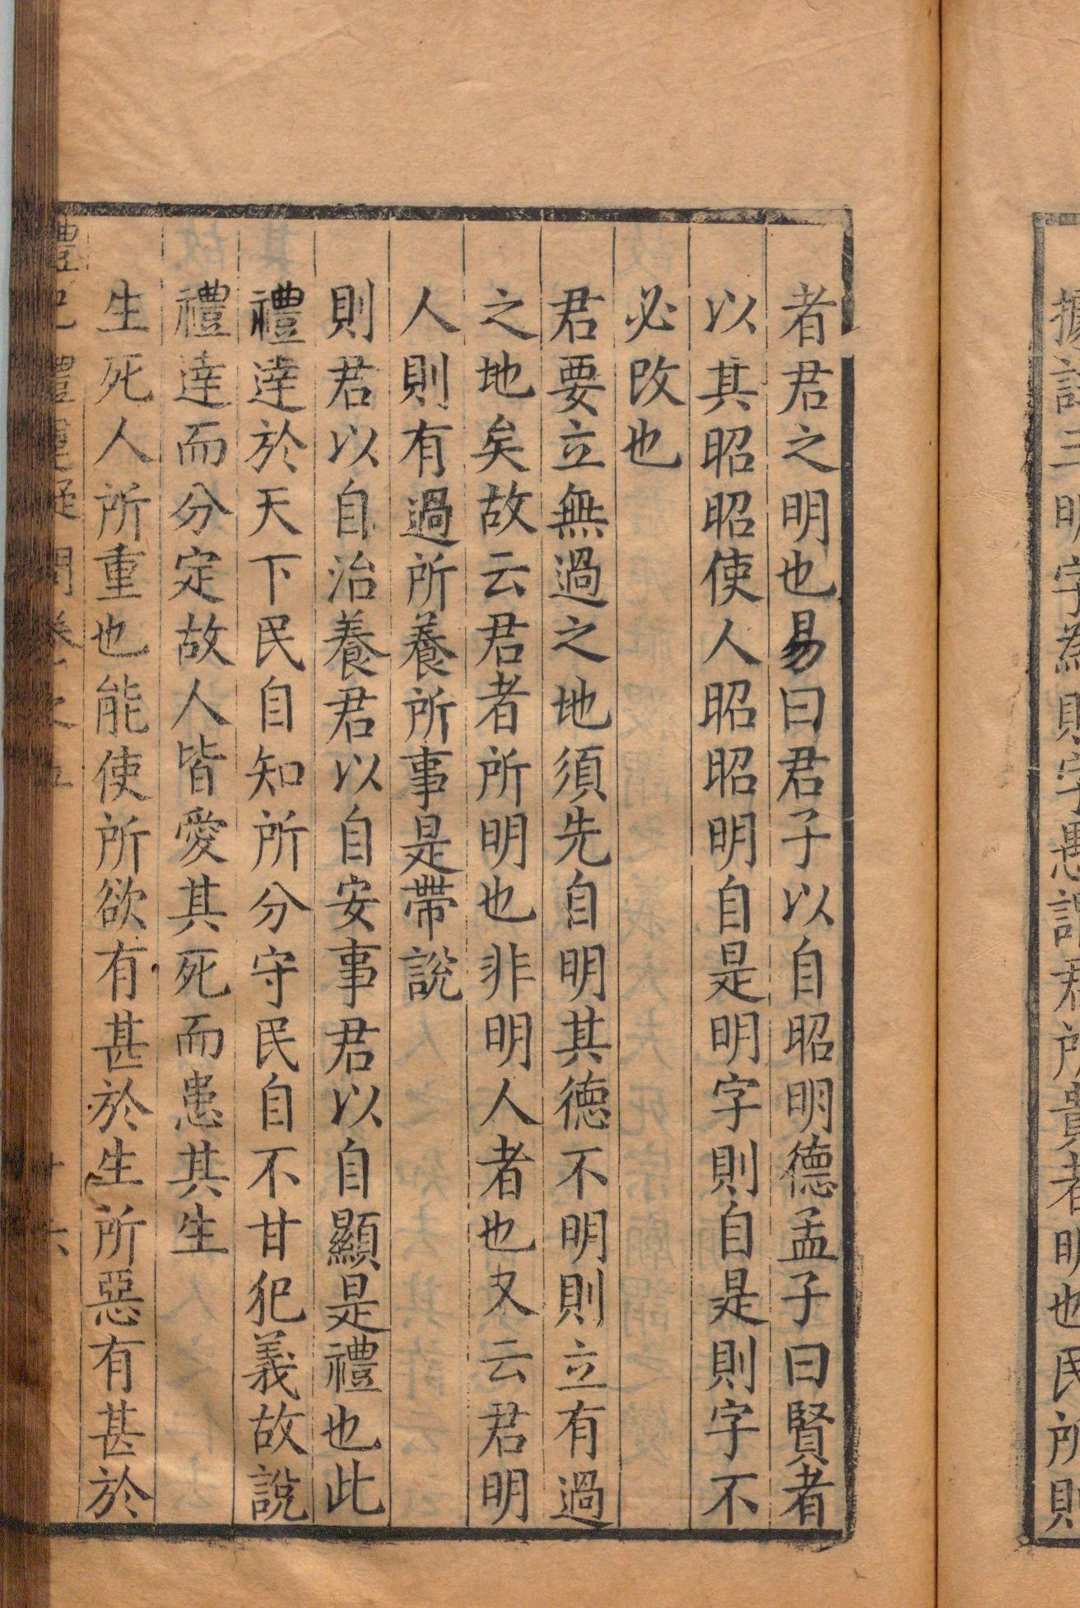 據註三明字為則字愚謂君所貴者明也民所則
者君之明也易曰君子以自昭明德孟子曰賢者
以其昭昭使人昭昭明自是明字則自是則字不
必改也
君要立無過之地須先自明其德不明則立有過
之地矣故云君者所明也非明人者也又云君明
人則有過所養所事是帶說
則君以自治養君以自安事君以自顯是禮也此
禮達於天下民自知所分守民自不甘犯義故說
禮達而分定故人皆愛其死而患其生
生死人所重也能使所欲有甚於生所惡有甚於
禮記禮運疑問卷之五 廿六